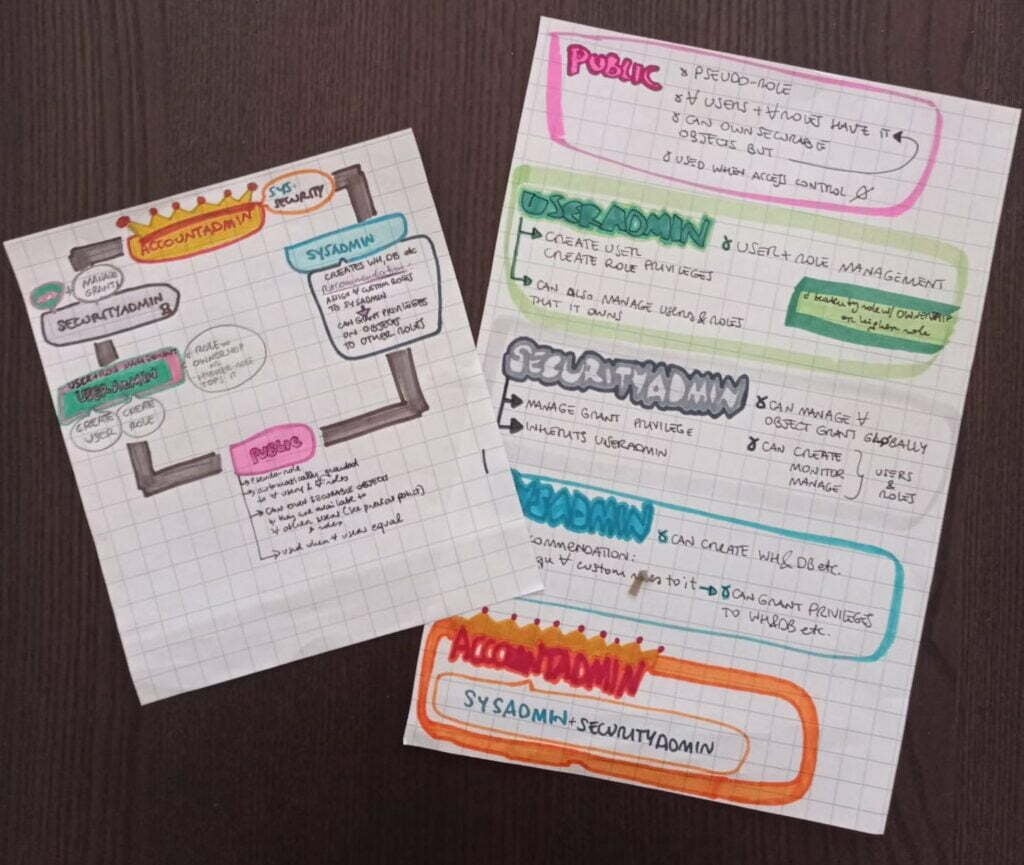 ACCOUNTADMIN
SYS+
SECURITY
MANAGE
GRANTS
SECURITYADMIN
SYSADMIN
CREATES WH, DB etc
Recommendation
ASSIGN ∀ CUSTOM ROLES
TO SYSADMIN
CAN GRANT PRIVILEGES
ON OBJECTS
TO OTHER ROLES
USERADMIN
CREATE
USER
CREATE
ROLE
ROLE w
OWNERSHIP
PUBLIC
Pseudo-role
automatically granted
to ∀ users & ∀ roles
CAN OWN SECURABLE OBJECTS
they are available to
∀ other users
& roles
used when ∀ users equal
PUBLIC
PSEUDO-ROLE
∀ USERS + ∀ ROLES HAVE IT
CAN OWN SECURABLE
OBJECTS BUT
USED WHEN ACCESS CONTROL
USERADMIN
USER + ROLE MANAGEMENT
CREATE USER
CREATE ROLE PRIVILEGES
CAN ALSO MANAGE USERS & ROLES
THAT IT OWNS
by role w/ OWNERSHIP
or higher role
SECURITYADMIN
MANAGE GRANT PRIVILEGE
INHERITS USERADMIN
CAN MANAGE ∀
OBJECT GRANT GLOBALLY
CAN CREATE
MONITOR
MANAGE
USERS
&
ROLES
YSADMIN
CAN CREATE WH & DB etc.
COMMENDATION:
∀ custom to it
CAN GRANT PRIVILEGES
TO WH&DB etc.
ACCOUNTADMIN
SYSADMIN+SECURITYADMIN